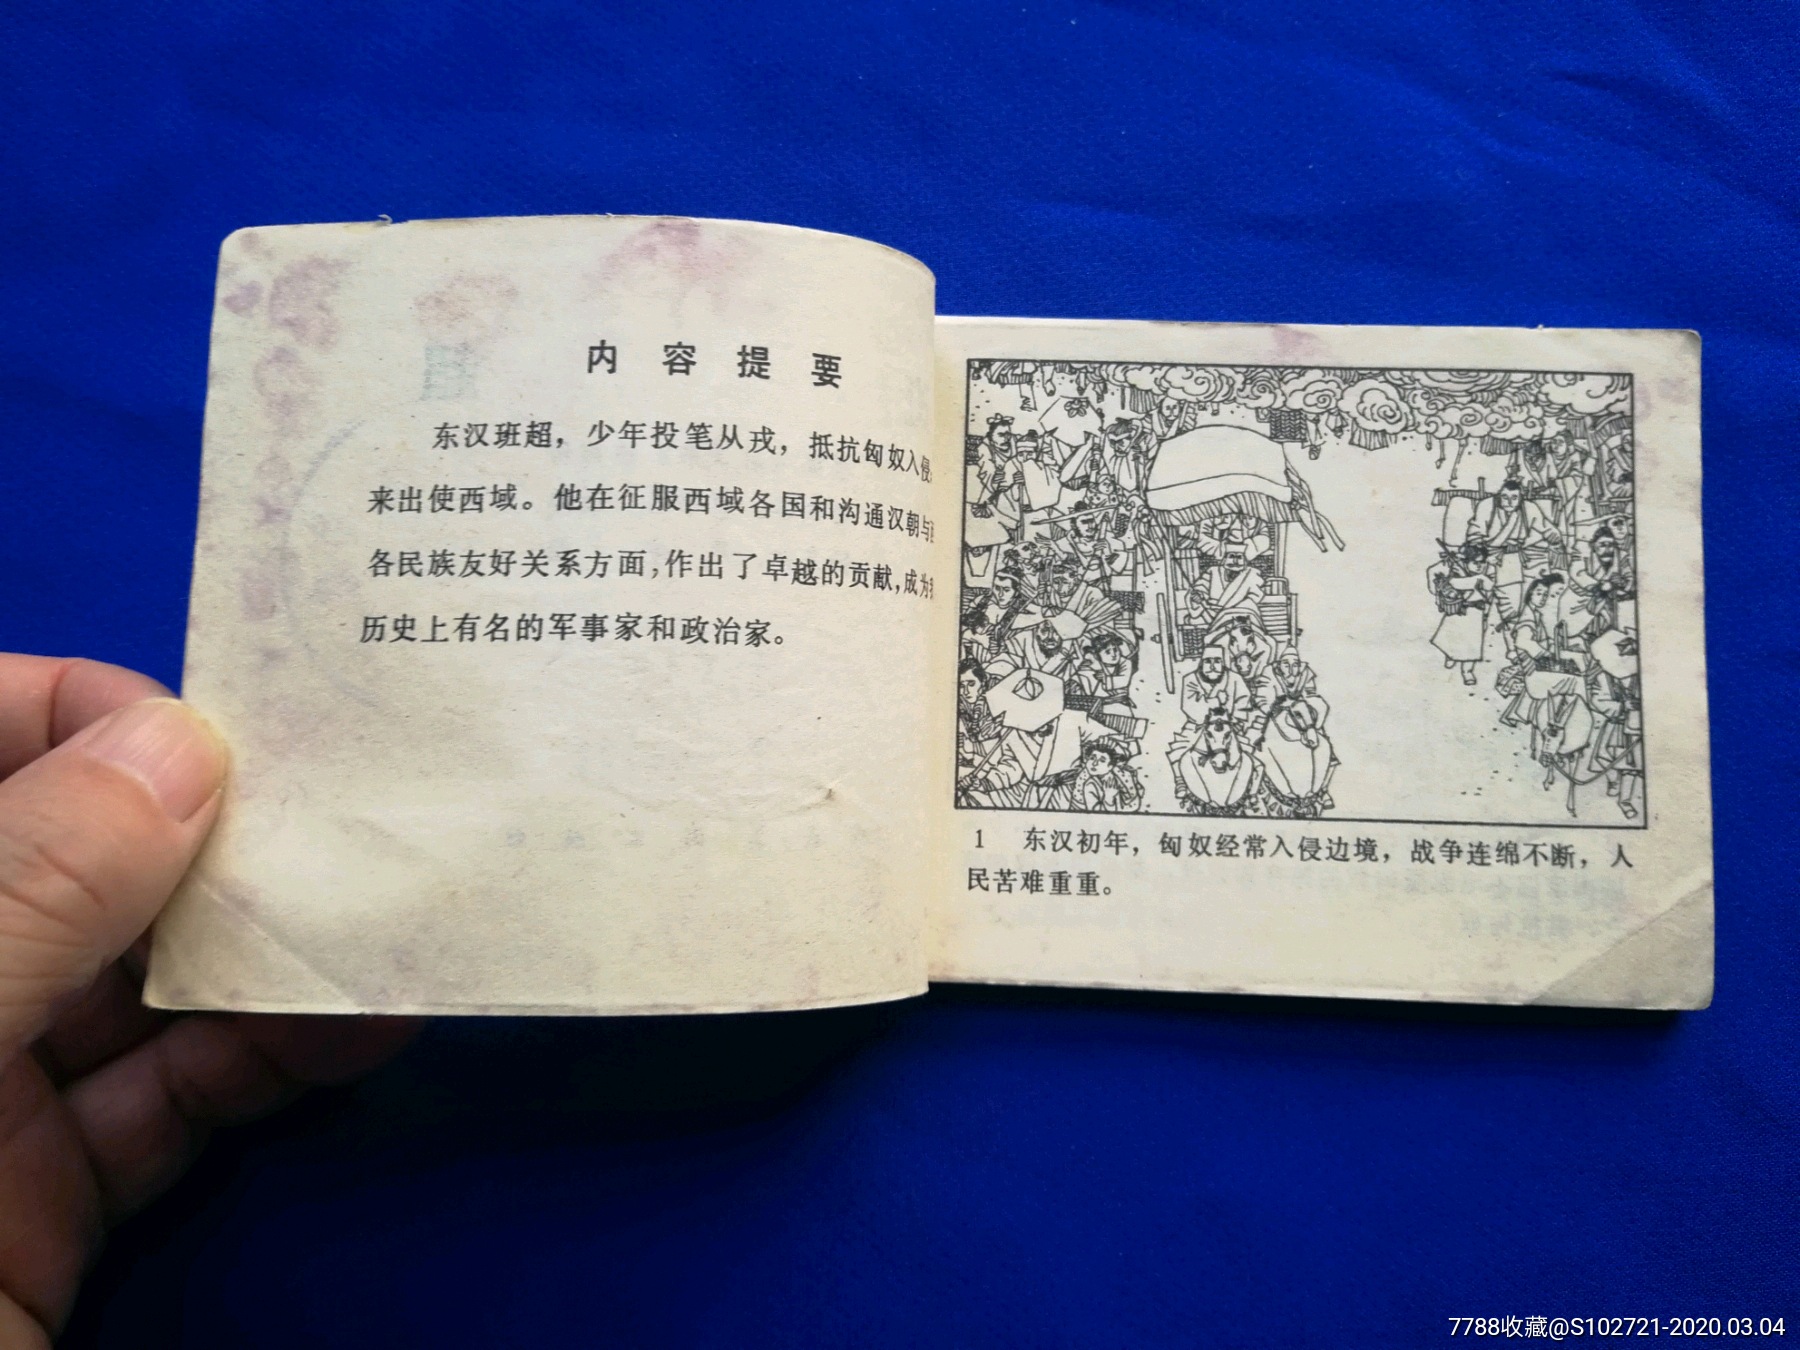 内容提要
东汉班超，少年投笔从戎，抵抗匈奴入侵，
来出使西域。他在征服西域各国和沟通汉朝与
各民族友好关系方面，作出了卓越的贡献，成为
历史上有名的军事家和政治家。
1 东汉初年，匈奴经常入侵边境，战争连绵不断，人
民苦难重重。
7788收藏@S102721-2020.03.04